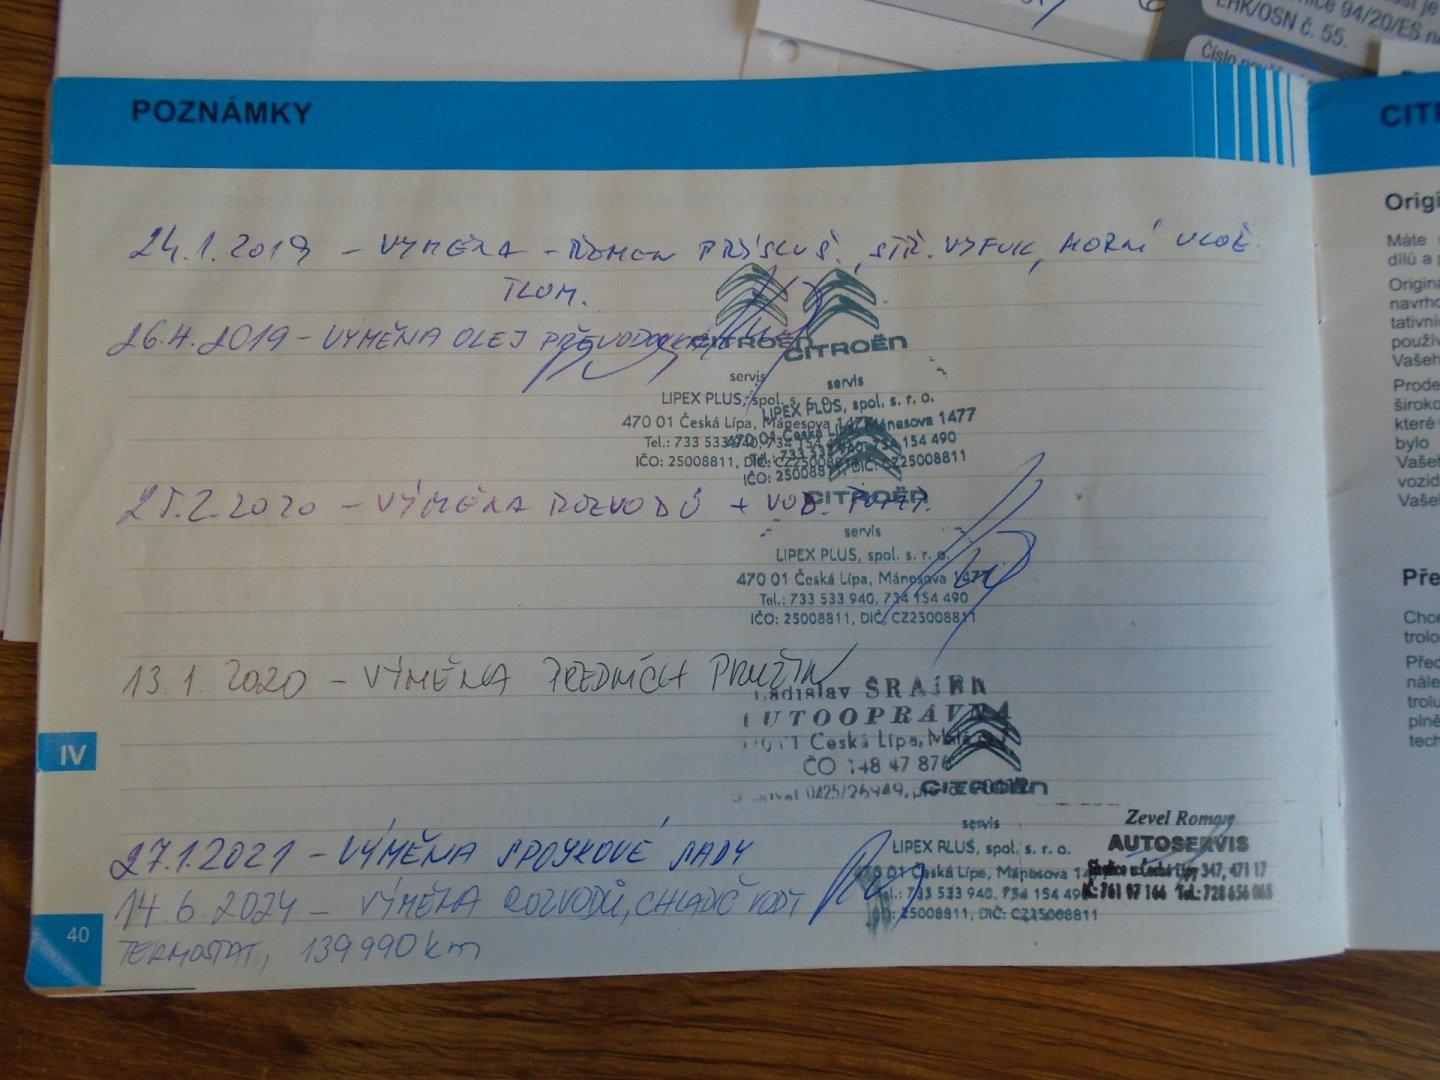 EHK/OSN č. 55.
94/20/ES
Číslo
POZNÁMKY
24.1.2019 - VÝMĚNA - ŘEMEN PŘÍSLUŠ., STŘ. VÝFUK, HORNÍ ULOŽ.
TLUM.
26.4.2019 - VÝMĚNA OLEJ
CITROËN
CITROËN
servis
servis
LIPEX PLUS, spol. s. r. o.
LIPEX PLUS, spol. s. r. o.
470 01 Česká Lípa, Mánesova 1477
470 01 Česká Lípa, Mánesova 1477
Tel.: 733 533 940, 734 154 490
IČO: 25008811, DIČ: CZ25008811
IČO: 25008811, DIČ: CZ25008811
CITROËN
25.2.2020 - VÝMĚNA ROZVODŮ + VOD. PUMP.
servis
LIPEX PLUS, spol. s. r. o.
470 01 Česká Lípa, Mánesova 1477
Tel.: 733 533 940, 734 154 490
IČO: 25008811, DIČ: CZ25008811
13.1.2020 - VÝMĚNA PŘEDNÍCH PRUŽIN
Ladislav ŠRAJER
AUTOOPRAVNA
Česká Lípa,
CITROËN
27.1.2021 - VÝMĚNA SPOJKOVÉ SADY
servis
LIPEX PLUS, spol. s. r. o.
470 01 Česká Lípa, Mánesova
Tel.: 733 533 940, 734 154 490
IČO: 25008811, DIČ: CZ25008811
Zevel Roman
AUTOSERVIS
347, 471 17
IČ: 761 97 166 Tel.: 728 656 065
14.6.2024 - VÝMĚNA ROZVODŮ, CHLADIČ VODY
TERMOSTAT, 139990 km
IV
40
CIT
Origi
Máte
dílů a p
Origina
navrho
tativní
použív
Vašeh
Prode
široko
které
bylo
Vašeh
vozid
Vašeh
Pře
Chce
trolo
Před
nále
trolu
plně
tech